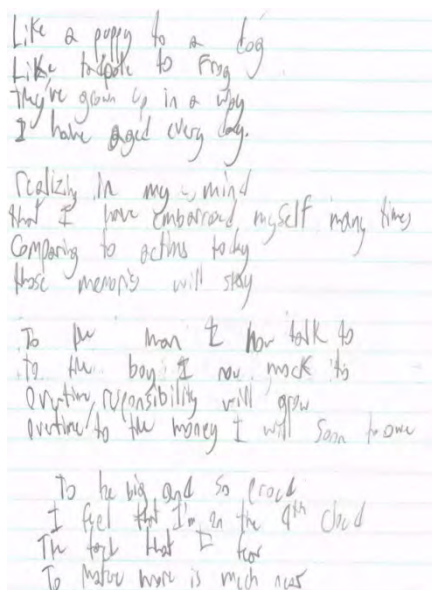 Like a puppy to a dog
Like tadpole to Frog
They've grown up in a way
I have aged every day.
realizing in my mind
that I have embarrasd myself many times
Comparing to actins today
those memoris will stay
To the man I now talk to
to the boy I now mock to
overtime responsibility will grow
overtime to the money I will soon to owe
To be big and so proud
I feel that I'm on the 9th cloud
The that I fear
To mature more is much near